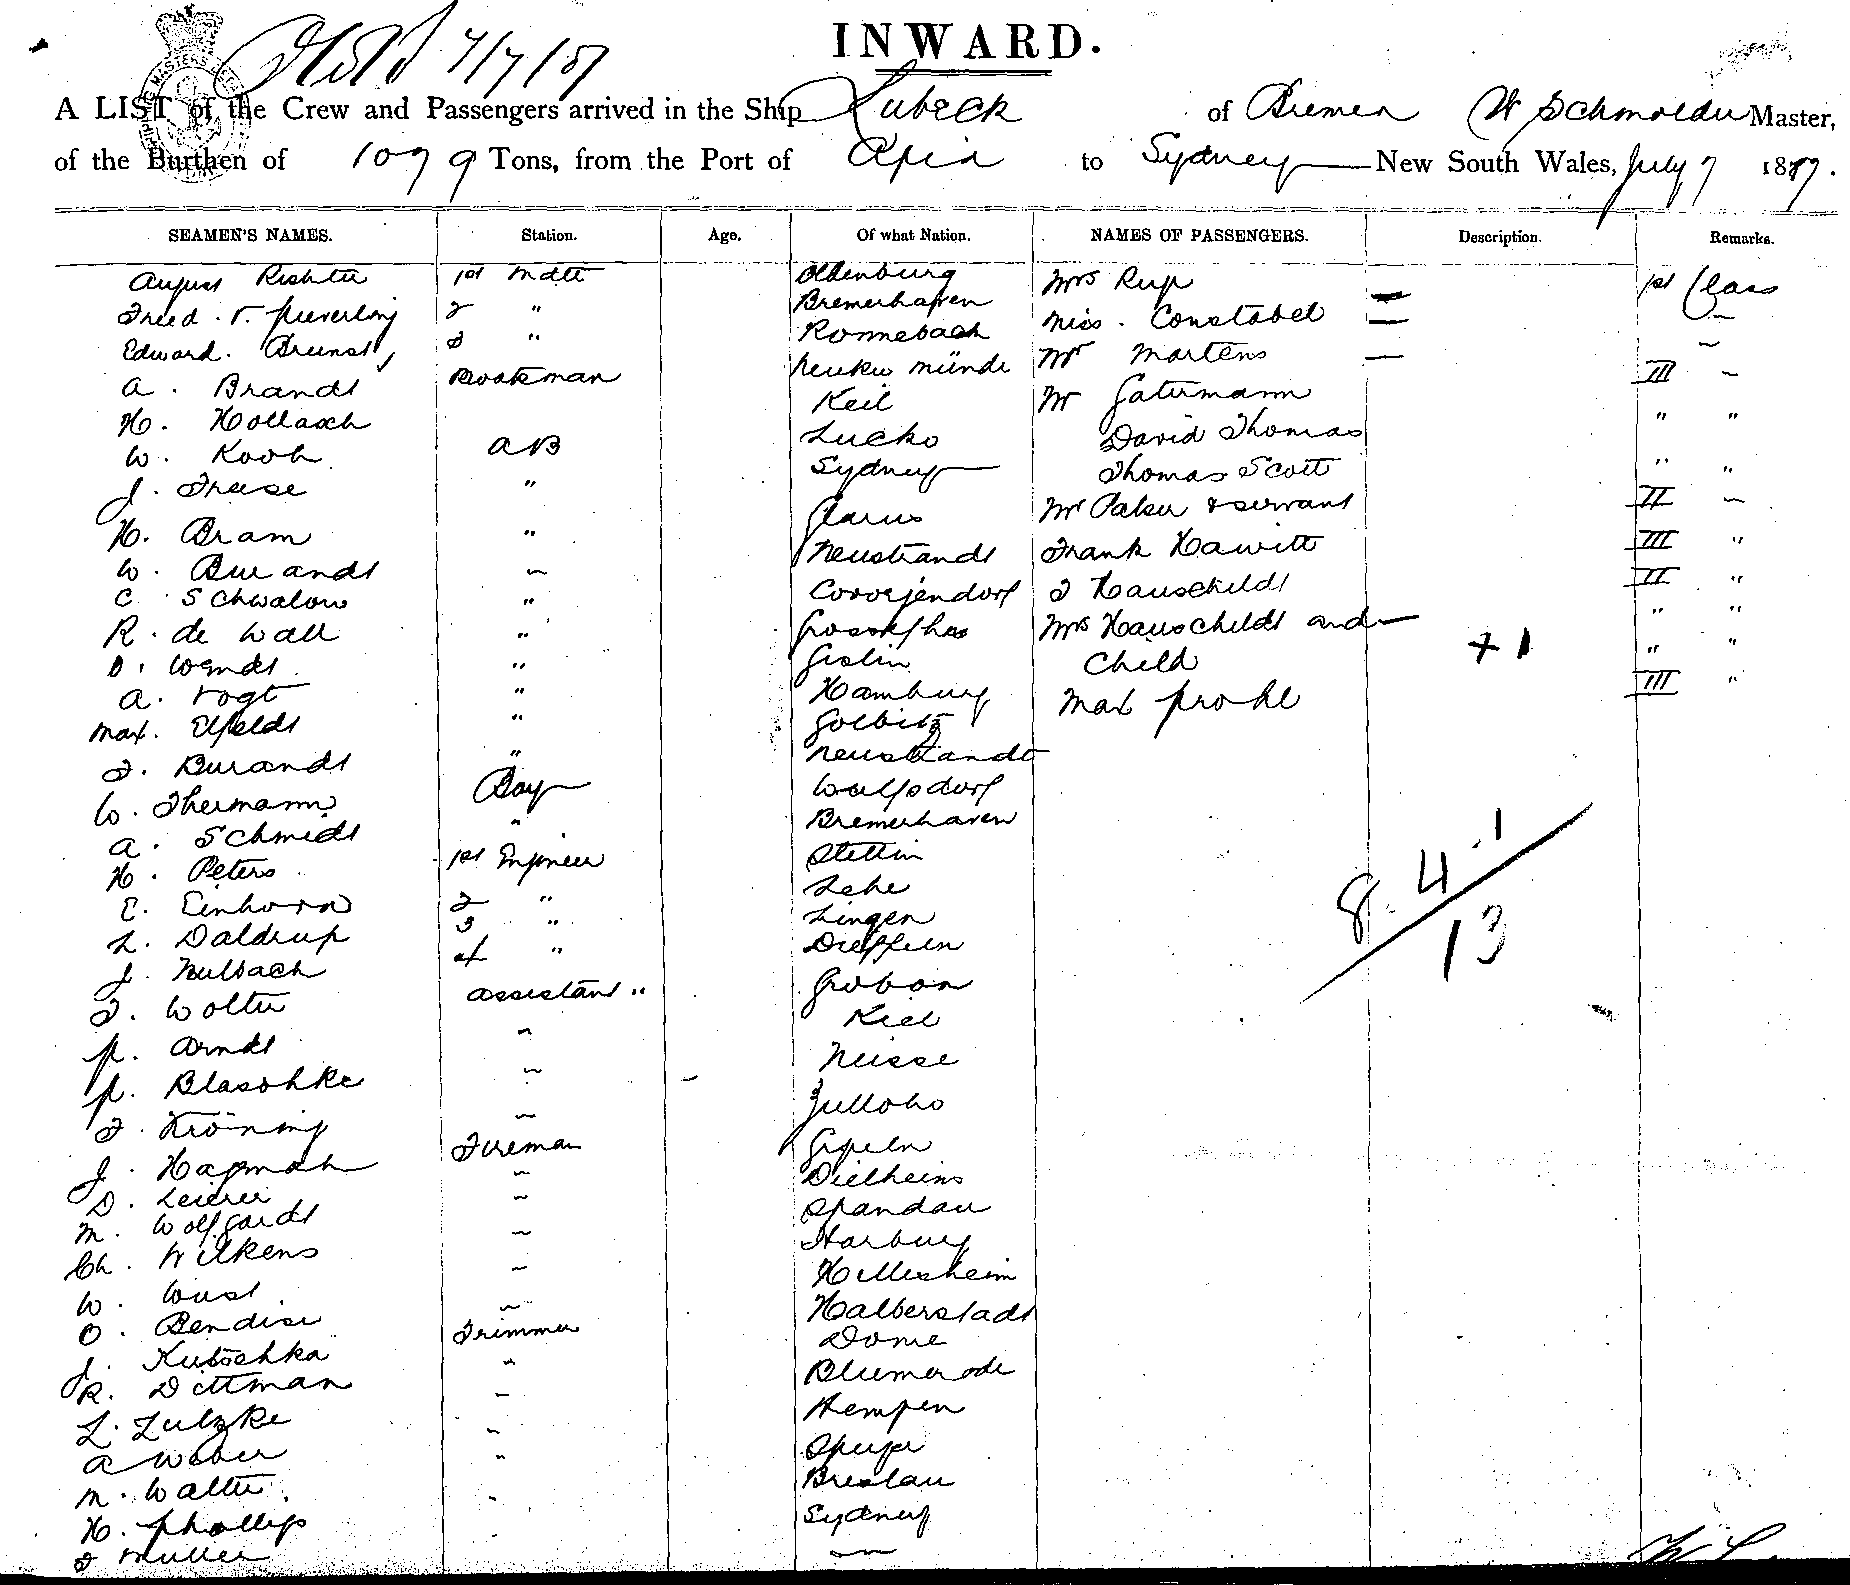 INWARD.
7/7/87
A LIST of the Crew and Passengers arrived in the Ship Lubeck of Bremen W Schmolder Master,
of the Burthen of 1079 Tons, from the Port of Apia to Sydney New South Wales, July 7 1887.
SEAMEN'S NAMES. Station. Age. Of what Nation. NAMES OF PASSENGERS. Description. Remarks.
August Richter 1st Mate Oldenburg Mrs Rup 1st Class
Fried. v. Pieverling 2 " Bremerhaven Miss. Constabel — ~
Edward. Brunst 3 " Ronnebach Mr Martens — ~
A. Brandt Bootsman münde Mr Gatermann III ~
H. Hollasch Keil David Thomas " "
W. Kooh AB Lucko Thomas Scott " "
J. Frese " Sydney Mr Paker & servant II ~
H. Bram " Glarus Frank Hawitt III "
W. Burandt ~ Neustrandt F Hauschildt II "
C. Schwalow " Mrs Hauschildt and — " "
R. de Wall " Child + 1 " "
O. Wendt " Gislin Max Prohl III "
A. Vogt " Hamburg
Max. Elfeldt " Golbitz
F. Burandt " Neustrandt
W. Thermann Boy Wolfsdorf
A. Schmidt " Bremerhaven
H. Peters 1st Engineer Stettin
E. Einhorn 2 " Lehe
L. Daldrup 3 " Lingen
J. Mulbach 4 "
F. Wolter Assistant " Grobon
P. Arndt ~ Kiel
P. Blaschke ~ Neisse
F. Kröning ~ Zulloho
J. Hagmah Fireman
D. Leierer ~ Dielheims
M. Wolfgardt ~ Spandau
Ch. Wilkens ~ Harburg
W. Wust ~ Hillesheim
O. Bendise ~ Halberstadt
J. Kutschka Trimmer Dome
R. Dittman " Blumerode
L. Lutzke ~ Kempen
A Weber ~ Speyer
M. Walter " Breslau
H. Phollips " Sydney
F Muller " ~
8. 4. 1
13